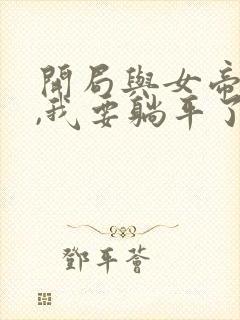 開局與女帝
,我要躺平了
鄧平薈